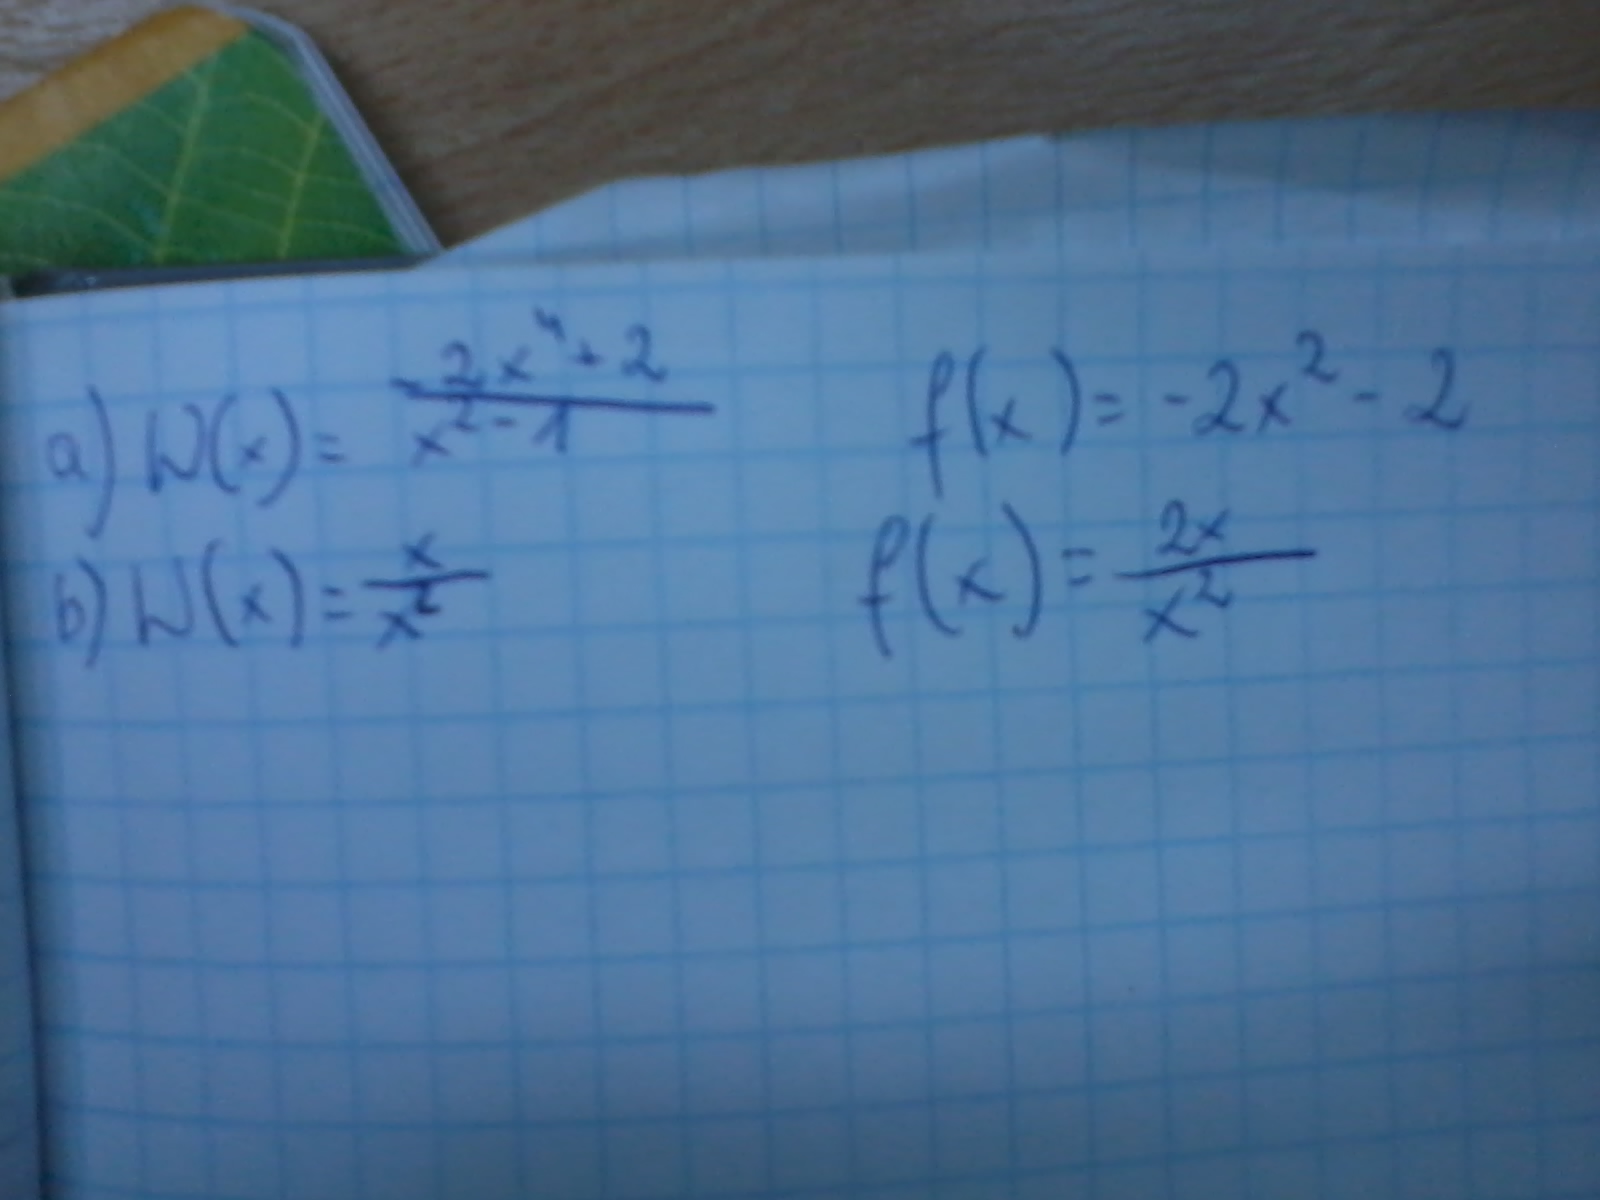 a) W(x) = (-2x⁴+2)/(x²-1) f(x) = -2x²-2
b) W(x) = x/x² f(x) = 2x/x²